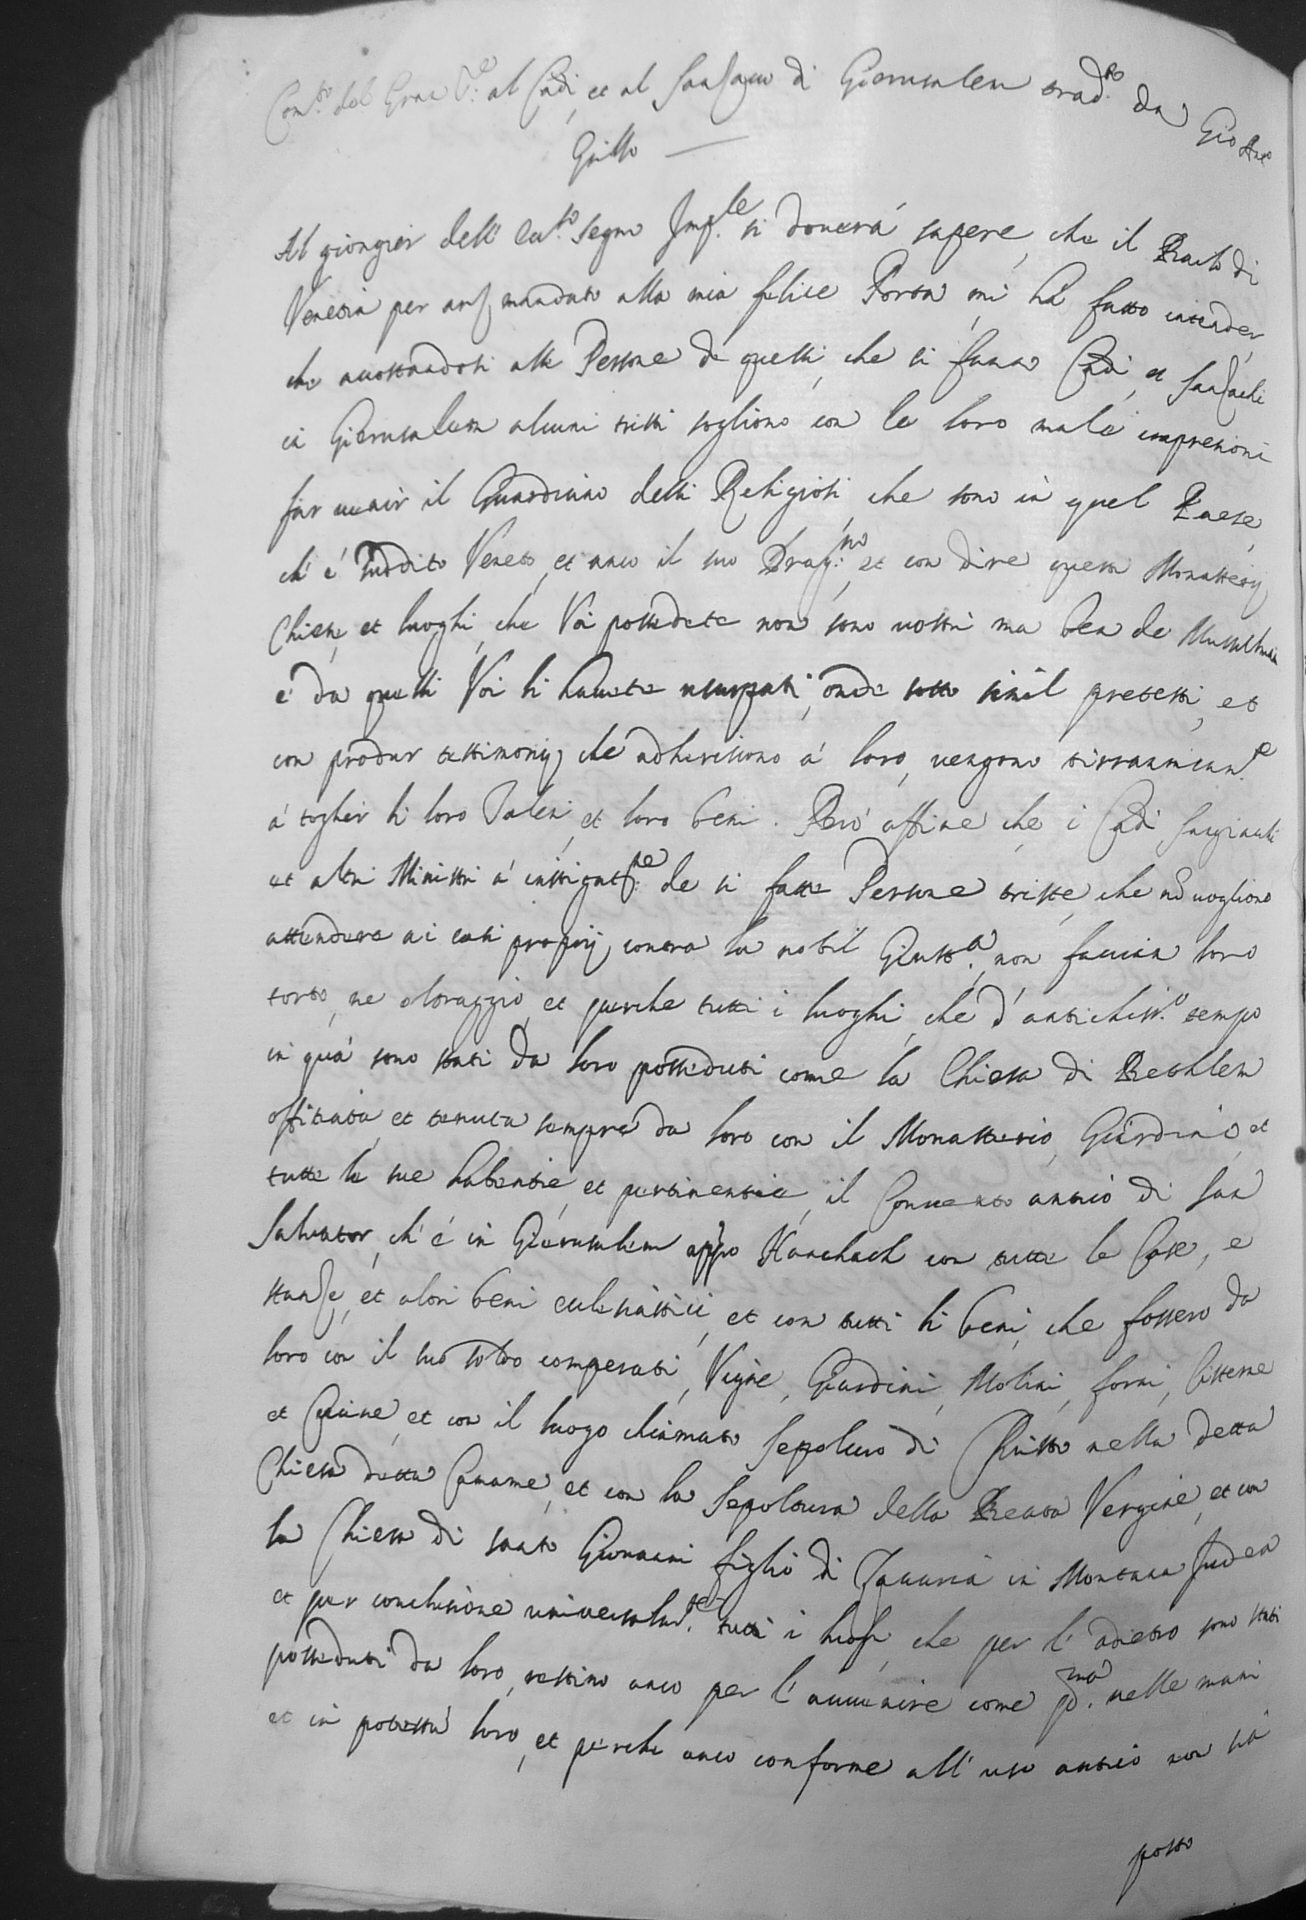 Com.to del Gran S.re al Cadi, et al Sanzaco di Gierusalem trad.to da Gio Ant.o
Grillo
Al gionger dell' ecc.so segno Imp.le si doverà sapere, che il Bailo di
Venetia per anz mandato alla mia felice Porta, mi hà fatto intender,
che accostandosi alle Persone di quelli, che si fanno Cadi, et Sanzachi
in Gierusalem alcuni tristi sogliono con le loro male impressioni
far venir il Guardiano delli Religiosi, che sono in quel Paese,
ch' è suddito Veneto, et anco il suo Drag.no, et con dire questi Monasterij
Chiese, et luoghi, che Voi possedete non sono vostri ma ben de Musulmani
e da quelli Voi li havete usurpati, onde sotto simil pretesti, et
con produr testimonij che adheriscono à loro, vengono tirranicam.te
à toglier li loro Daleri, et loro beni. Però affine, che i Cadi Sangiachi
et altri Ministri à instigat.ne de si fatte Persone triste, che nõ vogliono
attendere ai casi proprij contra la nobil Giust.a, non faccian loro
torto, ne oltraggio, et perche tutti i luoghi, che d' antichiss.o tempo
in quà sono stati da loro posseduti come la Chiesa di Bethlem
offitiata, et tenuta sempre da loro con il Monasterio, Giardini, et
tutte le sue habentie, et pertinentie, il Convento antico di San
Salvator, ch' è in Gierusalem app.o Hanchach con tutte le Case, e
stanze, et altri beni eclesiastici, et con tutti li beni, che fossero da
loro con il suo soldo comperati, Vigne, Giardini, Molini, forni, Cisterne
et Cucine, et con il luogo chiamato Sepolcro di Christo nella detta
Chiesa detta Camame, et con la Sepoltura della Beata Vergine, et con
la Chiesa di santo Giovanni figlio di Zaccaria in Montana Judea
et per conclusione universalm.te tutti i luoghi, che per l' adietro sono stati
posseduti da loro, restino anco per l' avvenire come p.ma nelle mani
et in potestà loro, et perche anco conforme all' uso antico non sia
posto